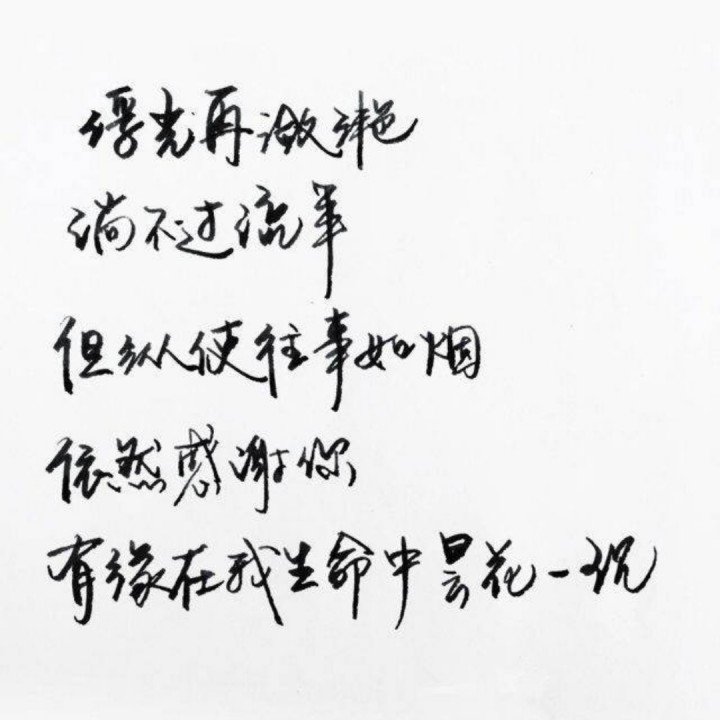 浮光再潋滟
淌不过流年
但纵使往事如烟
依然感谢你
有缘在我生命中昙花一现